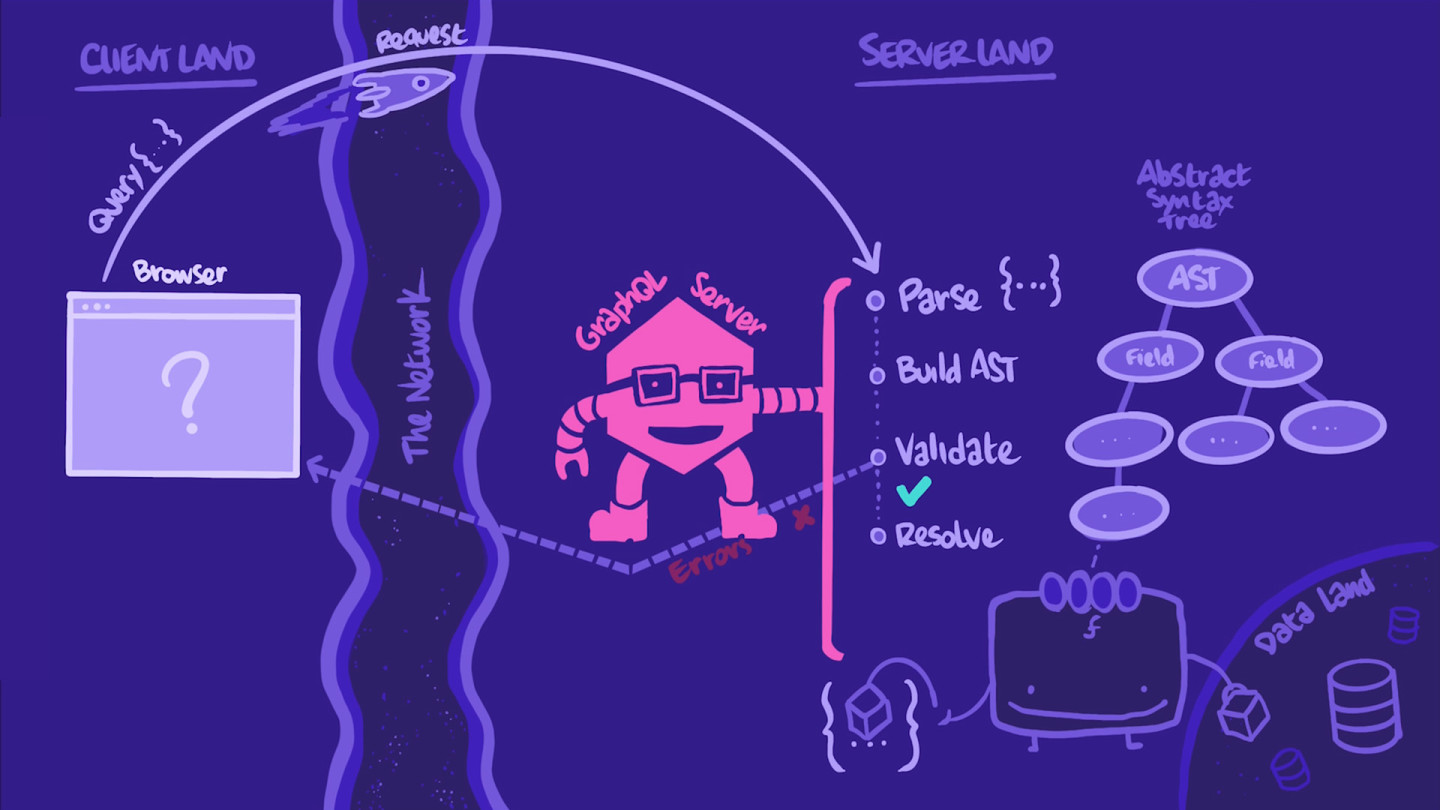 CLIENT LAND
Request
SERVER LAND
Query {...}
Browser
?
The Network
GraphQL Server
Parse {...}
Build AST
Validate
Resolve
Errors x
Abstract
Syntax
Tree
AST
Field
Field
...
...
...
...
f
Data Land
{...}